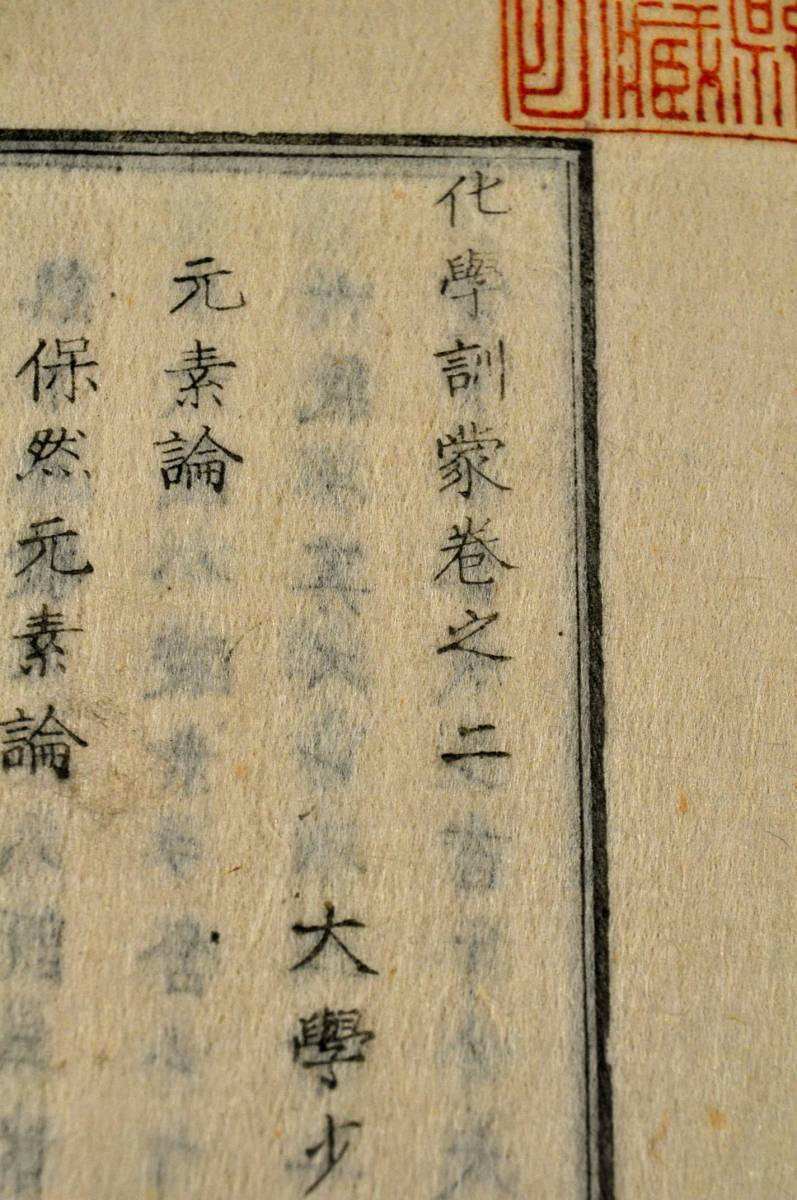 化學訓蒙卷之二
大學少
元素論
保然元素論